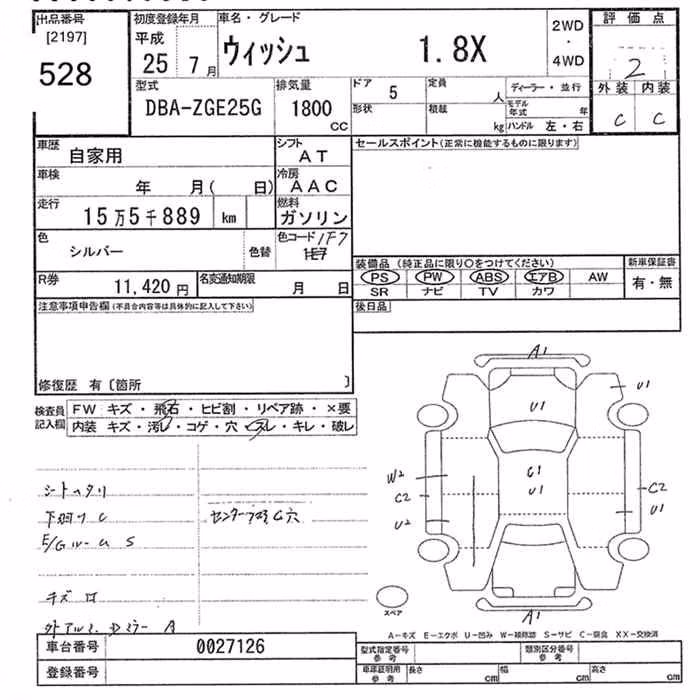 出品番号
[2197]
528
初度登録年月
平成
25 7月
車名・グレード
ウィッシュ 1.8X
2WD
・
4WD
評価点
2
外装 内装
C C
型式
DBA-ZGE25G
排気量
1800
CC
ドア 5
定員
人
ディーラー・並行
形状
積載
kg
モデル年式 年
ハンドル 左・右
車歴
自家用
シフト
AT
車検
年 月( 日)
冷房
AAC
走行
15万5千889 km
燃料
ガソリン
色
シルバー
色替
色コード 1F7
1E7
R券
11,420円
名変通知期限
月 日
セールスポイント(正常に機能するものに限ります)
装備品 (純正品に限り○をつけてください)
PS PW ABS エアB AW
SR ナビ TV カワ
新車保証書
有・無
後日品
注意事項申告欄(不具合内容等は具体的に記入して下さい)
修復歴 有〔箇所 〕
検査員
記入欄
FW キズ・飛石・ヒビ割・リペア跡・×要
内装 キズ・汚レ・コゲ・穴・スレ・キレ・破レ
下廻り C
キズ
A1
U1
U1
C1
U1
W2
C2
U2
C2
U1
A1
スペア
A－キズ E－エクボ U－凹み W－補修跡 S－サビ C－腐食 XX－交換済
車台番号
0027126
登録番号
型式指定番号
参考
類別区分番号
参考
車庫証明用
参考
長さ cm
幅 cm
高さ cm